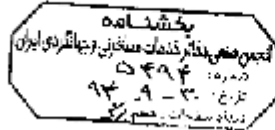 بخشنامه
انجمن صنفی دفاتر خدمات مسافرتی و جهانگردی ایران
شماره: ۵۴۹۴
تاریخ: ۳۰-۹-۹۴